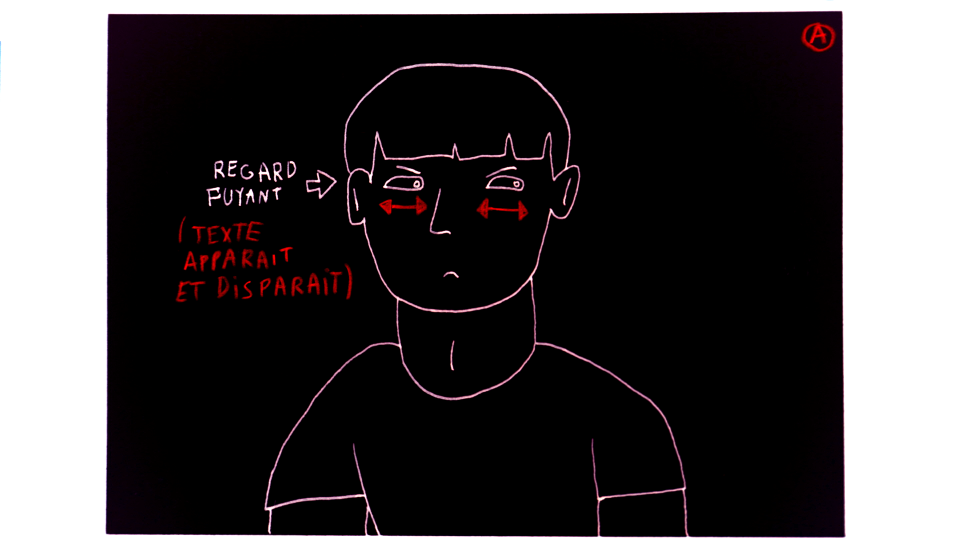 A
REGARD
FUYANT
(TEXTE
APPARAIT
ET DISPARAIT)